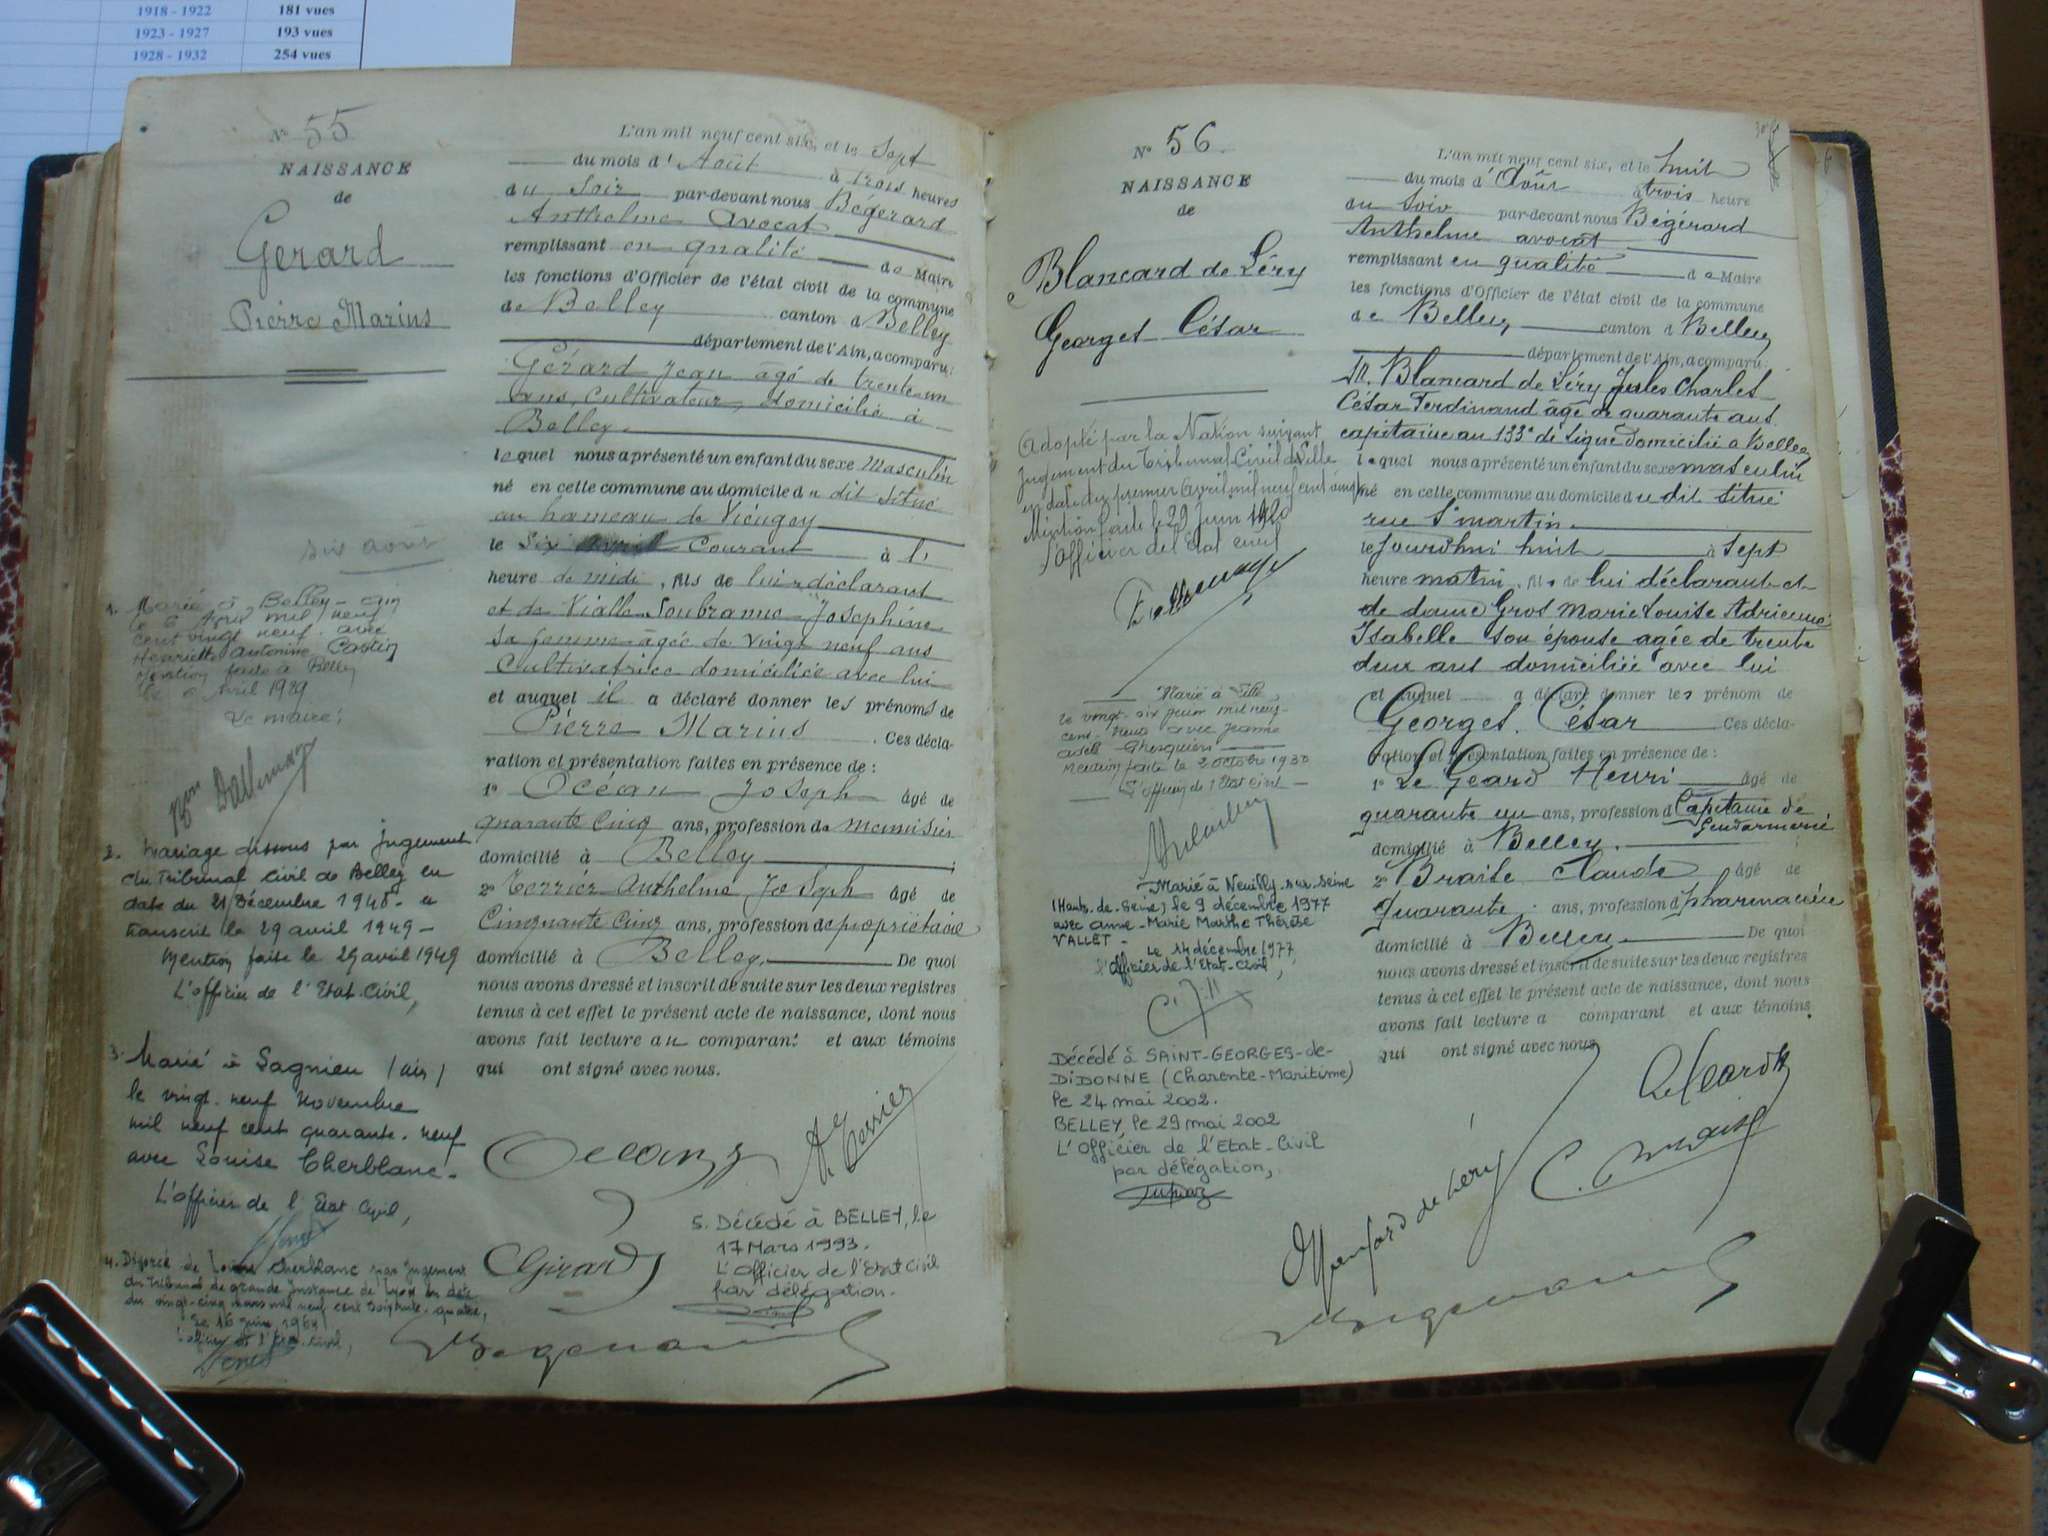 1918 - 1922 181 vues
1923 - 1927 193 vues
1928 - 1932 254 vues
N° 55
NAISSANCE
de
Gérard
Pierre Marius
six août
1. Marié à Belley - ain
le 6 avril mil neuf
cent vingt neuf avec
Henriette Antonine
Mention faite à Belley
le avril 1929
Le maire:
2. Mariage dissous par jugement
du Tribunal Civil de Belley en
date du 21 Décembre 1948 - et
transcrit le 29 avril 1949 -
Mention faite le 29 avril 1949
L'officier de l'Etat-Civil,
3. Marié à Sagnieu (ain)
le vingt-neuf Novembre
mil neuf cent quarante-neuf
avec Louise Cherblanc.
L'officier de l'Etat Civil,
4. Divorcé de Louise Cherblanc par jugement
du Tribunal de grande Instance de Lyon en date
du vingt-cinq mars mil neuf cent soixante-quatre,
le 16 juin 1964
l'officier de l'Etat-Civil,
L'an mil neuf cent six, et le Sept
du mois d'Août à trois heures
du Soir par-devant nous Bégérard
Anthelme avocat
remplissant en qualité de Maire
les fonctions d'Officier de l'état civil de la commune
de Belley canton d Belley
département de l'Ain, a comparu:
Gérard Jean âgé de trente-un
ans, Cultivateur, domicilié à
Belley.
lequel nous a présenté un enfant du sexe Masculin
né en cette commune au domicile du dit situé
au hameau de
le Six avril Courant à l'
heure de midi, fils de lui déclarant
et de Vialle Soubranne Joséphine
sa femme âgée de vingt neuf ans
Cultivatrice domiciliée avec lui
et auquel il a déclaré donner les prénoms de
Pierre Marius. Ces décla-
ration et présentation faites en présence de:
1° Océan Joseph âgé de
quarante cinq ans, profession de menuisier
domicilié à Belley;
2° Terrier Anthelme Joseph âgé de
Cinquante cinq ans, profession de propriétaire
domicilié à Belley. De quoi
nous avons dressé et inscrit de suite sur les deux registres
tenus à cet effet le présent acte de naissance, dont nous
avons fait lecture au comparant et aux témoins
qui ont signé avec nous.
A Terrier
5. Décédé à BELLEY, le
17 Mars 1993.
L'Officier de l'Etat Civil
par délégation.
N° 56
NAISSANCE
de
Blancard de Léry
Georges César
Adopté par la Nation suivant
Jugement du Tribunal Civil de Lille
en date du premier avril mil neuf cent vingt
Mention faite le 29 Juin 1920
l'Officier de l'Etat civil
Marié à Lille
le vingt-six juin mil neuf
cent trente avec Jeanne
Adèle Ghesquière
Mention faite le 2 octobre 1930
L'officier de l'Etat civil
Marié à Neuilly-sur-Seine
(Hauts-de-Seine) le 9 décembre 1977
avec Anne-Marie Marthe Thérèse
VALLET -
Le 14 décembre 1977,
l'Officier de l'Etat-Civil,
Décédé à SAINT-GEORGES-de-
DIDONNE (Charente-Maritime)
le 24 mai 2002.
BELLEY, le 29 mai 2002
L'Officier de l'Etat-Civil
par délégation,
L'an mil neuf cent six, et le huit
du mois d'Août à trois heure
du soir par-devant nous Bégérard
Anthelme avocat
remplissant en qualité de Maire
les fonctions d'Officier de l'état civil de la commune
de Belley canton d Belley
département de l'Ain, a comparu:
M. Blancard de Léry Jules Charles
César Ferdinand âgé de quarante ans
capitaine au 133e de Ligne domicilié à Belley
lequel nous a présenté un enfant du sexe masculin
né en cette commune au domicile du dit situé
rue St martin.
le jourd'hui huit à sept
heure matin, fils de lui déclarant et
de dame Gros Marie Louise Adrienne
Isabelle son épouse agée de trente
deux ans domiciliée avec lui
et auquel a déclaré donner les prénom de
Georges César Ces décla-
ration et présentation faites en présence de:
1° Le Géard Henri âgé de
quarante un ans, profession d Capitaine de
Gendarmerie
domicilié à Belley.
2° Claude âgé de
quarante ans, profession d pharmacien
domicilié à Belley. De quoi
nous avons dressé et inscrit de suite sur les deux registres
tenus à cet effet le présent acte de naissance, dont nous
avons fait lecture a comparant et aux témoins
qui ont signé avec nous